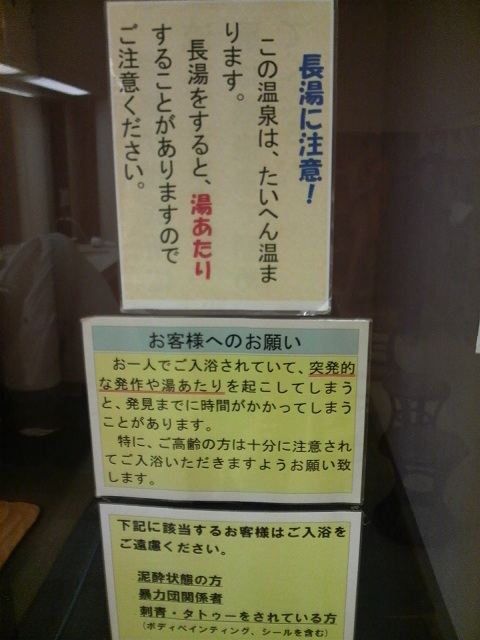 長湯に注意！
この温泉は、たいへん温ま
ります。
長湯をすると、湯あたり
することがありますので
ご注意ください。
お客様へのお願い
お一人でご入浴されていて、突発的
な発作や湯あたりを起こしてしまう
と、発見までに時間がかかってしまう
ことがあります。
特に、ご高齢の方は十分に注意され
てご入浴いただきますようお願い致
します。
下記に該当するお客様はご入浴を
ご遠慮ください。
泥酔状態の方
暴力団関係者
刺青・タトゥーをされている方
（ボディペインティング、シールを含む）